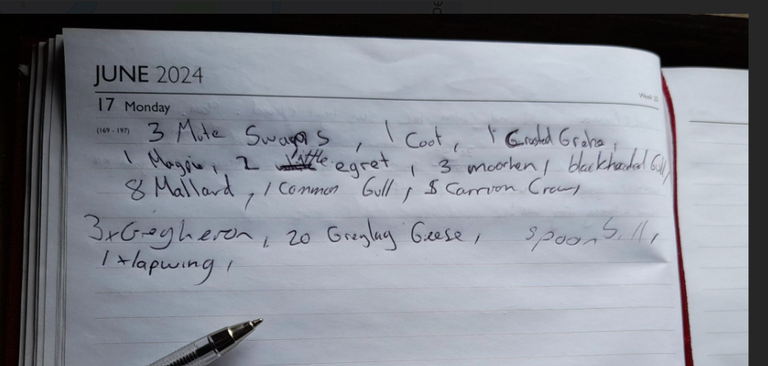 JUNE 2024
Week 25
17 Monday
(169 - 197) 3 Mute Swans, 1 Coot, 1 Crested Grebe,
1 Magpie, 2 little egret, 3 moorhen, blackheaded Gull,
8 Mallard, 1 Common Gull, 5 Carrion Crow,
3x Greyheron, 20 Greylag Geese, Spoonbill,
1 x lapwing,